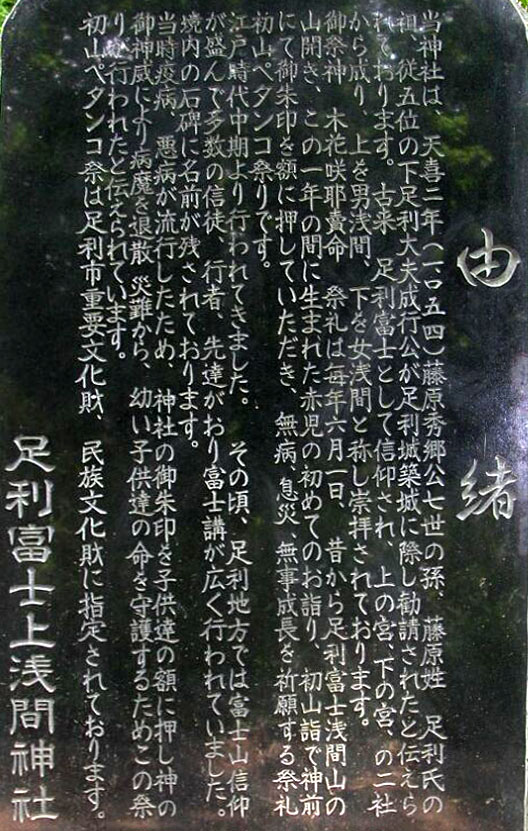 由緒
当神社は、天喜二年(一〇五四)藤原秀郷公七世の孫、藤原姓 足利氏の
祖、従五位の下足利大夫成行公が足利城築城に際し勧請されたと伝えら
れております。古来 足利富士として信仰され、上の宮、下の宮、の二社
から成り、上を男浅間、下を女浅間と称し崇拝されております。
御祭神 木花咲耶賣命 祭礼は毎年六月一日、昔から足利富士浅間山の
山開き、この一年の間に生まれた赤児の初めてのお詣り、初山詣で神前
にて御朱印を額に押していただき、無病、息災、無事成長を祈願する祭礼
初山ペタンコ祭りです。
江戸時代中期より行われてきました。 その頃、足利地方では富士山信仰
が盛んで多数の信徒、行者、先達がおり富士講が広く行われていました。
境内の石碑に名前が残されております。
当時疫病、悪病が流行したため、神社の御朱印を子供達の額に押し神の
御神威により病魔を退散 災難から、幼い子供達の命を守護するためこの祭
りが行われたと伝えられています。
初山ペタンコ祭は足利市重要文化財、民族文化財に指定されております。
足利富士上浅間神社